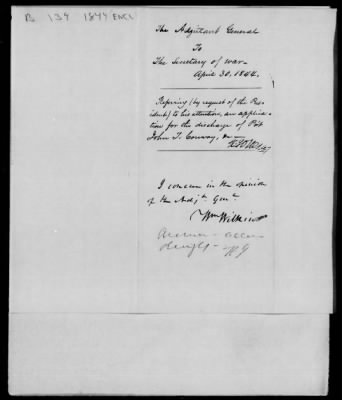 B 134 1844 ENCL
The Adjutant General
To
The Secretary of War
April 30, 1844.
Referring (by request of the Pres-
ident) to his attention, an applica-
tion for the discharge of Pvt
John T. Conway,
I concur in the opinion
of the Adjt. Genl.
Wm Wilkins